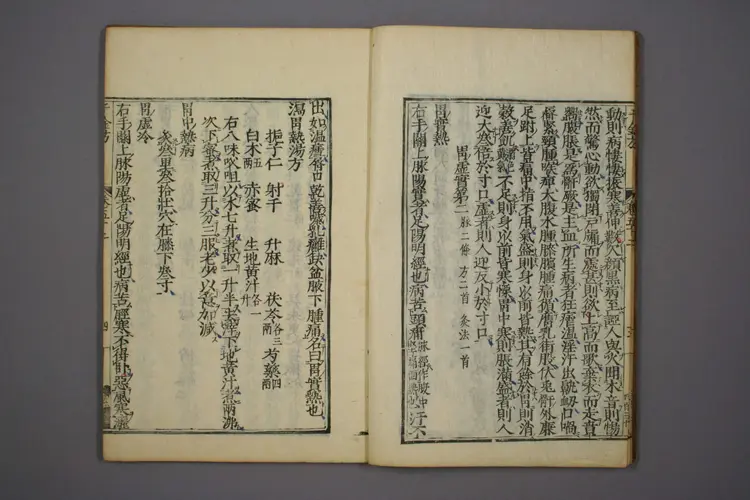 動則病悽悽振寒善伸數欠顏黑病至惡人與火聞木音則惕
然而驚心動欲獨閉戶牖而處甚則欲上高而歌棄衣而走賁
響腹脹是為骭厥是主血所生病者狂瘧溫淫汗出鼽衂口喎
脣緊頸腫喉痺大腹水腫膝臏腫痛循膺乳街股伏兔骭外廉
足跗上皆痛中指不用氣盛則身以前皆熱其有餘於胃則消
穀善飢溺色黃氣不足則身以前皆寒慄胃中寒則脹滿盛者則人
迎大三倍於寸口虛者則人迎反小於寸口
胃虛實第二 脉二條 方二首 灸法一首
胃實熱
右手關上脉陽實者足陽明經也病苦頭痛 汗不
出如溫瘧脣口乾善噦乳癰缺盆腋下腫痛名曰胃實熱也
瀉胃熱湯方
梔子仁 射干 升麻 茯苓各三兩 芍藥四兩
白术五兩 赤蜜 生地黃汁各一升
右八味㕮咀以水七升煮取一升半去滓下地黃汁煮兩沸
次下蜜煮取三升分三服老少以意加減
胃中熱病
灸三里三拾壯穴在膝下三寸
胃虛冷
右手關上脉陽虛者足陽明經也病苦脛寒不得臥惡風寒洒